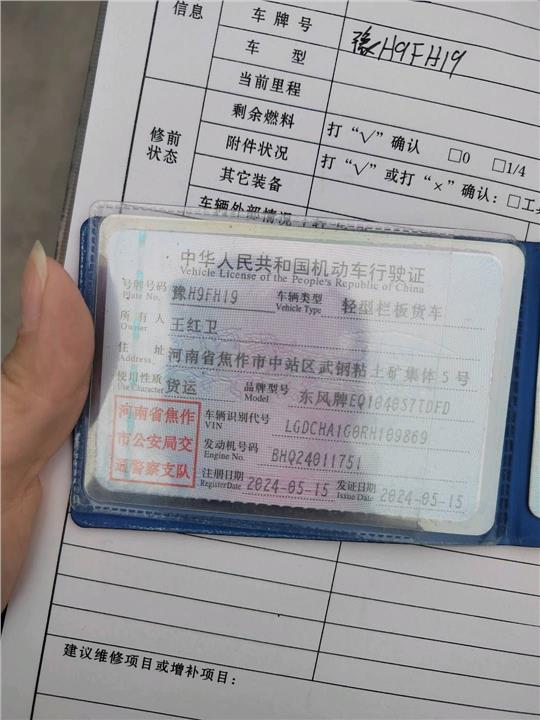 信息
车牌号
豫H9FH19
车型
当前里程
修前
状态
剩余燃料
打“√”确认 □0 □1/4
附件状况
打“√”或打“×”确认：□工具
其它装备
车辆外部情况
中华人民共和国机动车行驶证
Vehicle License of the People's Republic of China
号牌号码 豫H9FH19 车辆类型 轻型栏板货车
Plate No. Vehicle Type
所有人 王红卫
Owner
住址 河南省焦作市中站区武钢粘土矿集体5号
Address
使用性质 货运 品牌型号 东风牌EQ1040S7TDFD
Use Character Model
河南省焦作
市公安局交
通警察支队
车辆识别代号 LGDCHA1G0RH109869
VIN
发动机号码 BHQ24011751
Engine No.
注册日期 2024-05-15 发证日期 2024-05-15
Register Date Issue Date
建议维修项目或增补项目：